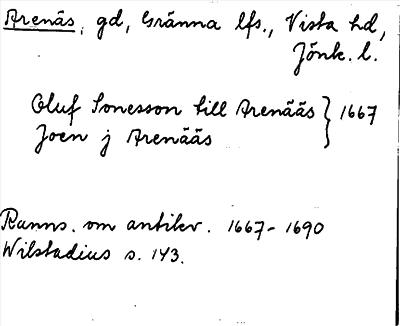 Arenäs, gd, Gränna lfs., Vista hd,
Jönk. l.
Oluf Sonesson till Arenääs } 1667
Joen j Arenääs
Ranns. om antikv. 1667-1690
Wilstadius s. 143.